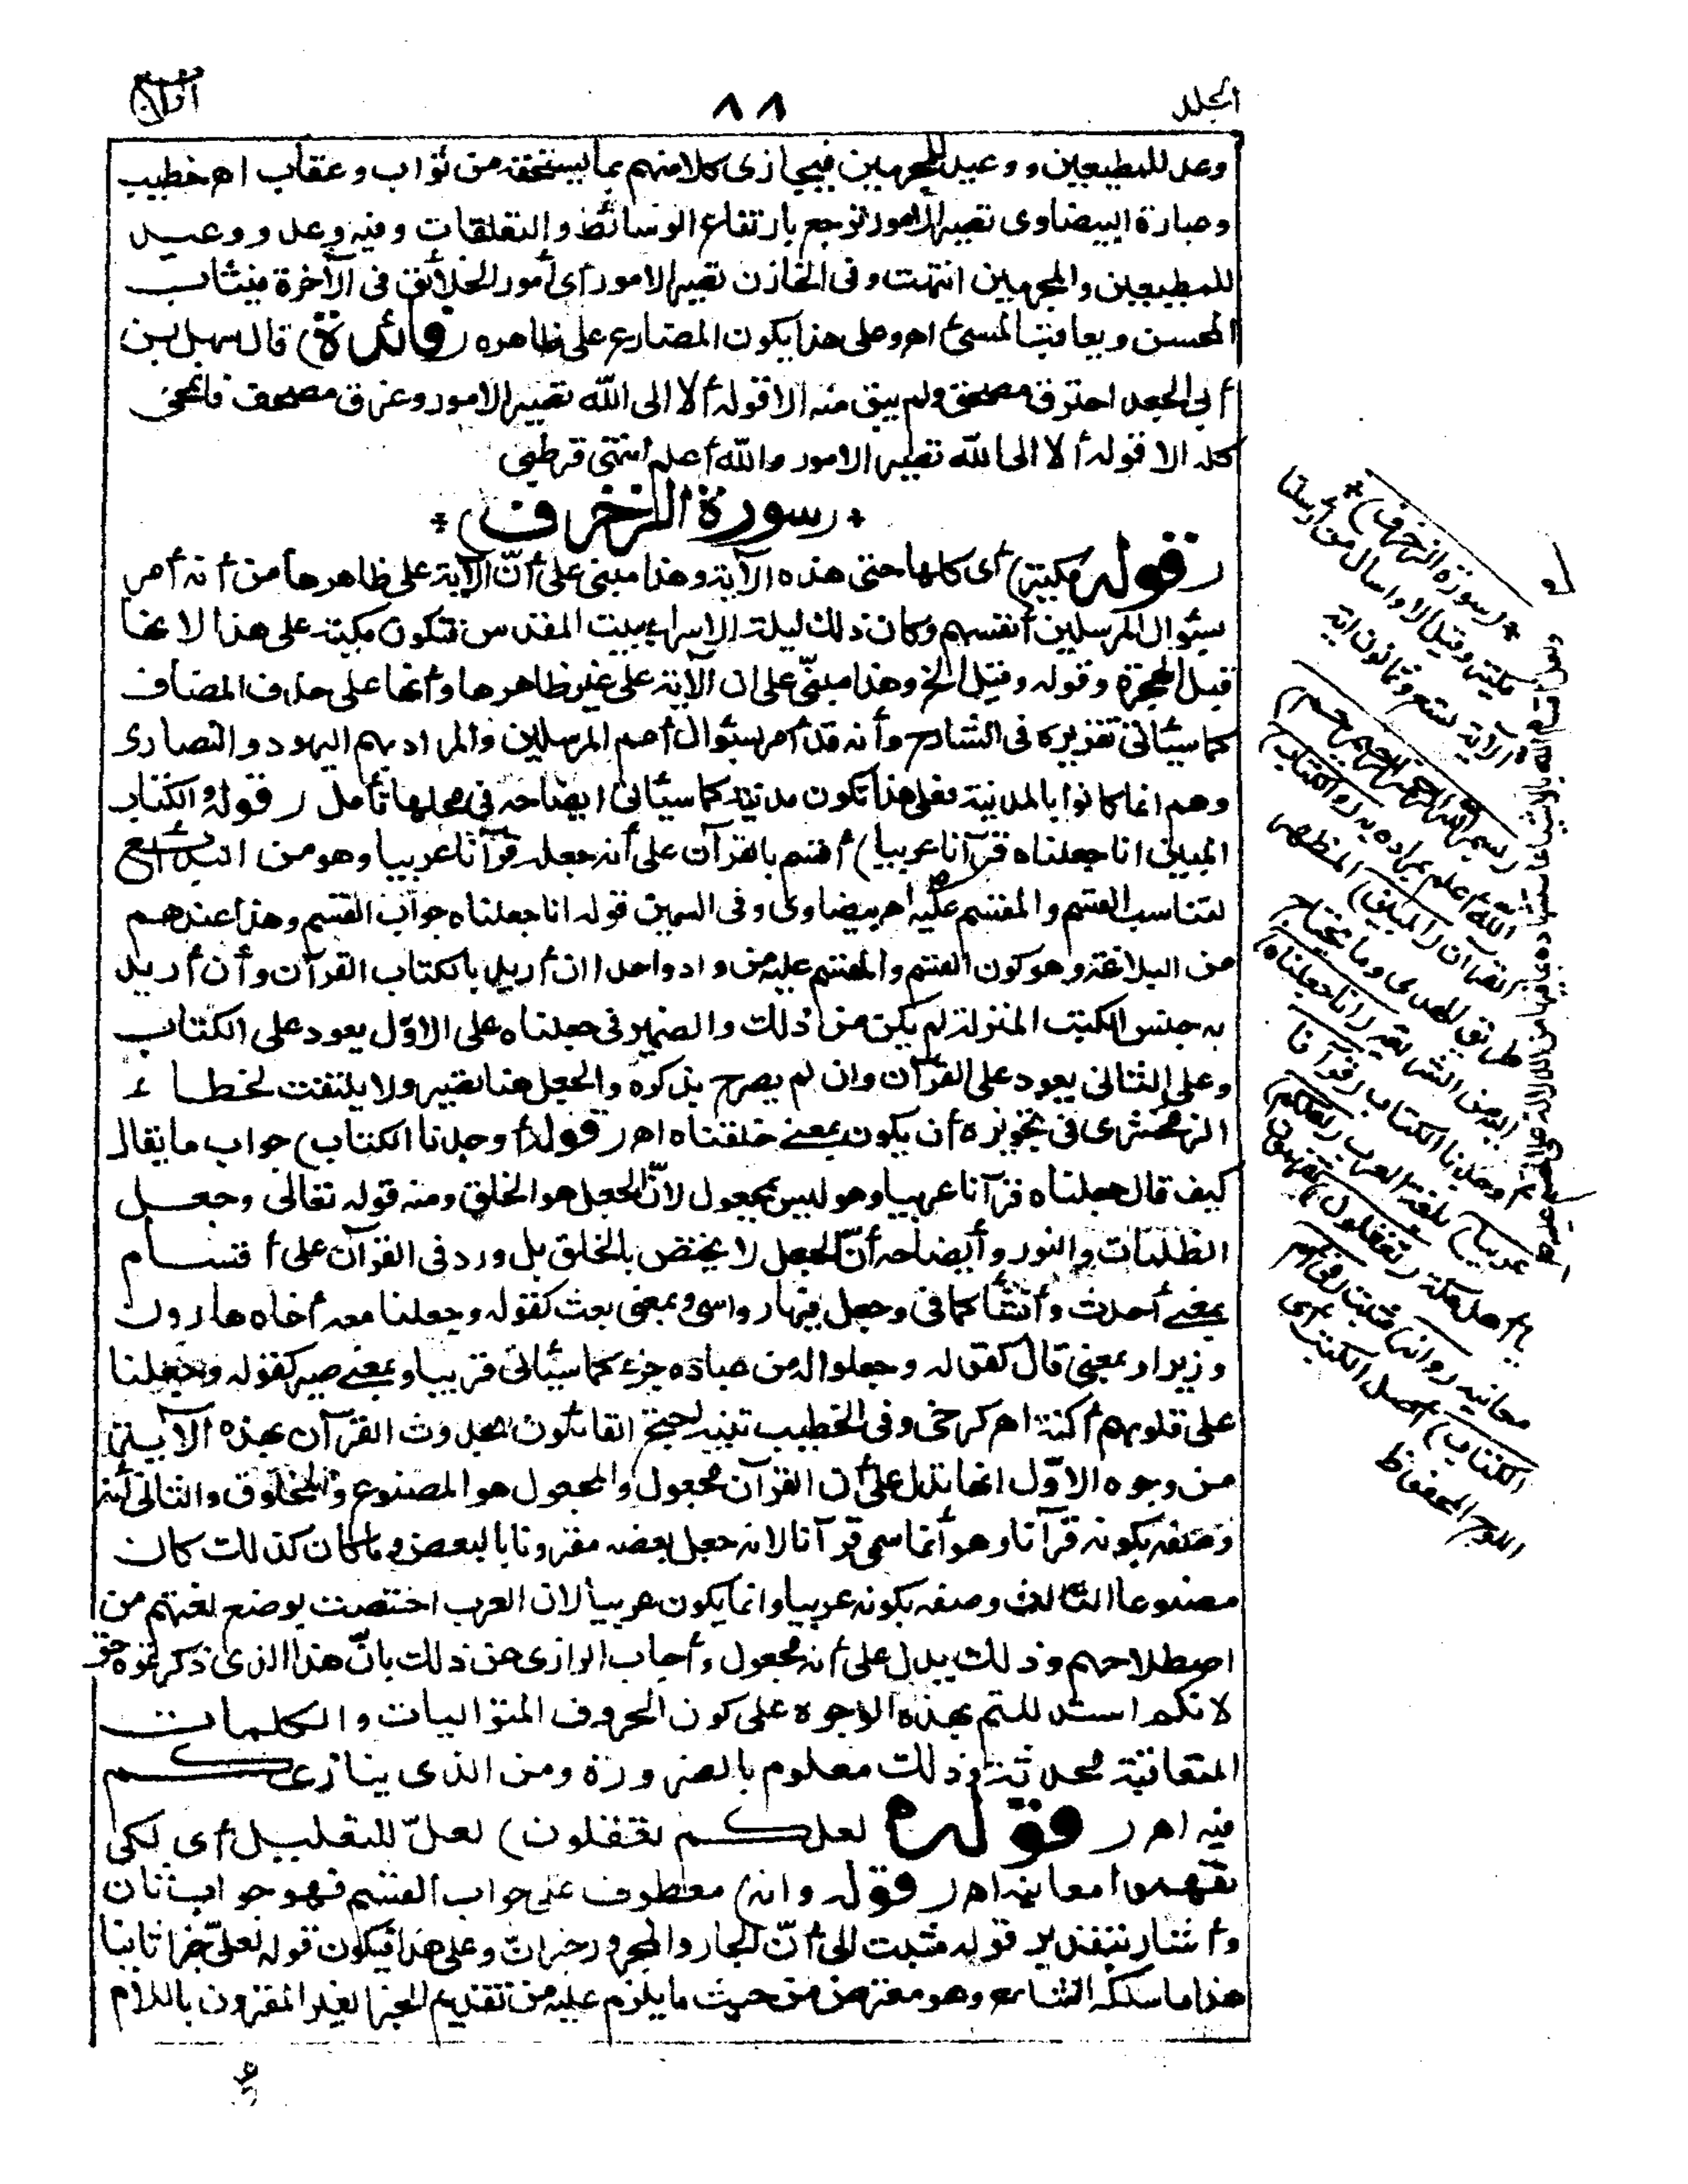 الجلد
٨٨
الرابع
وعد للمطيعين ووعيد للمجرمين فيجازى كلا منهم بما يستحقه من ثواب وعقاب اه خطيب
وعبارة البيضاوى تصير الامور ترجع بارتفاع الوسائط والتعلقات وفيه وعد ووعيد
للمطيعين والمجرمين انتهت وفى الخازن تصير الامور أى أمور الخلائق فى الآخرة فيثاب
المحسن ويعاقب المسىء اه وعلى هذا يكون المضارع على ظاهره (فائدة) قال سهل بن
أبى الجعد احترق مصحف ولم يبق منه الا قوله ألا الى الله تصير الامور وغرق مصحف فانمحى
كله الا قوله ألا الى الله تصير الامور والله أعلم انتهى قرطبى
*(سورة الزخرف)*
(قوله مكية) أى كلها حتى هذه الآية وهذا مبنى على أنّ الآية على ظاهرها من أنه أمر
بسؤال المرسلين أنفسهم وكان ذلك ليلة الاسراء ببيت المقدس فتكون مكية على هذا لانها
قبل الهجرة وقوله وقيل الخ وهذا مبنىّ على ان الآية على غير ظاهرها وأنها على حذف المضاف
كما سيأتى تقريره فى الشارح وأنه قد أمر بسؤال أمم المرسلين والمراد بهم اليهود والنصارى
وهم انما كانوا بالمدينة فعلى هذا تكون مدنية كما سيأتى ايضاحه فى محلها تأمل (قوله والكتاب
المبين انا جعلناه قرآنا عربيا) أقسم بالقرآن على أنه جعله قرآنا عربيا وهو من البدائع
لتناسب القسم والمقسم عليه اه بيضاوى وفى السمين قوله انا جعلناه جواب القسم وهذا عندهم
من البلاغة وهو كون القسم والمقسم عليه من واد واحد ان أريد بالكتاب القرآن وأن أريد
به جنس الكتب المنزلة لم يكن من ذلك والضمير فى جعلناه على الاوّل يعود على الكتاب
وعلى الثانى يعود على القرآن وان لم يصرح بذكره والجعل هنا تصيير ولا يلتفت لخطاء
الزمخشرى فى تجويزه أن يكون بمعنى خلقناه اه (قوله أوجدنا الكتاب) جواب ما يقال
كيف قال جعلناه قرآنا عربيا وهو ليس بمجعول لانّ الجعل هو الخلق ومنه قوله تعالى وجعل
الظلمات والنور وأيضاحه أنّ الجعل لا يختص بالخلق بل ورد فى القرآن على أقسام
بمعنى أحدث وأنشأ كما فى وجعل فيها رواسى وبمعنى بعث كقوله وجعلنا معه أخاه هارون
وزيرا وبمعنى قال كقوله وجعلوا له من عباده جزء كما سيأتى قريبا وبمعنى صير كقوله وجعلنا
على قلوبهم أكنة اه كرخى وفى الخطيب تنبيه احتج القائلون بحدوث القرآن بهذه الآية
من وجوه الاوّل انها تدل على أن القرآن مجعول والمجعول هو المصنوع والمخلوق والثانى أنه
وصفه بكونه قرآنا وهو أنما سمى قرآنا لانه جعل بعضه مقرونا بالبعض وما كان كذلك كان
مصنوعا الثالث وصفه بكونه عربيا وانما يكون عربيا لان العرب اختصت بوضع لغتهم من
اصطلاحهم وذلك يدل على أنه مجعول وأجاب الرازى عن ذلك بانّ هذا الذى ذكرتموه حق
لانكم استدللتم بهذه الوجوه على كون الحروف المتواليات والكلمات
المتعاقبة محدثة وذلك معلوم بالضرورة ومن الذى ينازعكم
فيه اه (قوله لعلكم تعقلون) لعلّ للتعليل أى لكى
تفهموا معانيه اه (قوله وانه) معطوف على جواب القسم فهو جواب ثان
وأشار بتقدير قوله مثبت الى أنّ الجار والمجرور خبر انّ وعلى هذا فيكون قوله لعلىّ خبرا ثانيا
هذا ما سلكه الشارح وهو معترض من حيث ما يلزم عليه من تقديم الخبر الغير المقرون باللام
*(سورة الزخرف)*
مكية وقيل الا واسأل من أرسلنا
الآية تسع وثمانون اية
(بسم الله الرحمن الرحيم حم)
الله أعلم بمراده به (والكتاب)
القرآن (المبين) المظهر
طريق الهدى وما يحتاج
اليه من الشريعة (انا جعلناه)
أوجدنا الكتاب (قرآنا
عربيا) بلغة العرب (لعلكم)
يا أهل مكة (تعقلون) تفهمون
معانيه (وانه) مثبت (فى أم
الكتاب) أصل الكتب أى
اللوح المحفوظ